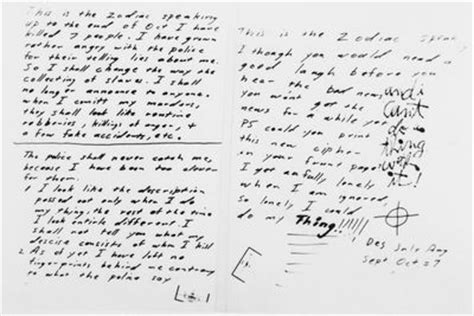 This is the Zodiac speaking
up to the end of Oct I have
killed 7 people. I have grown
rather angry with the police
for their telling lies about me.
So I shall change the way the
collecting of slaves. I shall
no longer announce to anyone.
when I comitt my murders,
they shall look like routine
robberies, killings of anger, +
a few fake accidents, etc.
The police shall never catch me,
because I have been too clever
for them.
1 I look like the description
passed out only when I do
my thing, the rest of the time
I look entirle different. I
shall not tell you what my
descise consists of when I kill
2 As of yet I have left no
fingerprints behind me contrary
to what the police say
1
This is the Zodiac speaking
I though you would need a
good laugh before you
hear the bad news
you won't get the
news for a while yet
PS could you print
this new cipher
in your frunt page
I get awfully lonely
when I am ignored,
so lonely I could
do my Thing!!!!!!
and i
can't
do a
thing
with
it!
Des July Aug
Sept Oct = 7